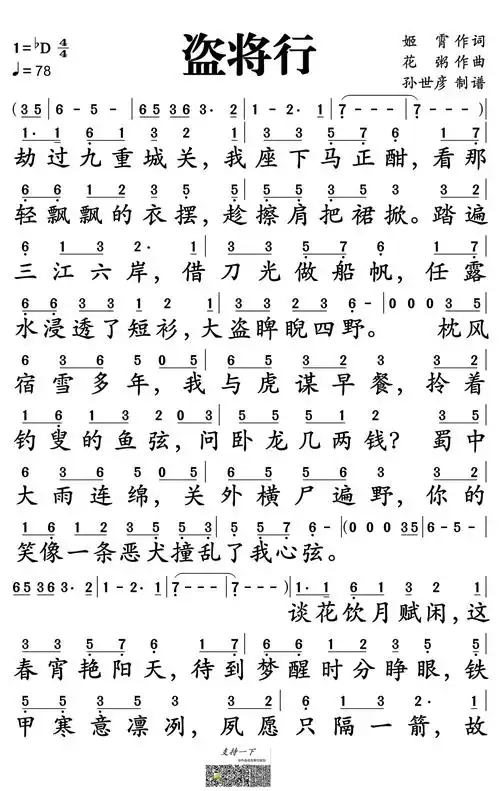 1=♭D 4/4
♩=78
盗将行
姬霄作词
花粥作曲
孙世彦制谱
(35|6-5-|656336 3·2|1-2·1|7---|7---)|
1·1 6 1 3 2 1|3 3 3 5 7 6 1 7|
劫过九重城关，我座下马正酣，看那
6 6 6 1 2 3 5 5|5 5 3 5 3 5 3 5|
轻飘飘的衣摆，趁擦肩把裙掀。踏遍
6 1 3 2· 1|3 3 5 7 6 1 7|
三江六岸，借刀光做船帆，任露
6 6 3 3 1 2 1|3 3 3 2 3 6-|0 0 0 3 5|
水浸透了短衫，大盗睥睨四野。枕风
6 3 6 5 0 5|3 5 6 5 3 2 3|
宿雪多年，我与虎谋早餐，拎着
1 6 1 3 2 0 3|5 5 5 5 1 2 3 5|
钓叟的鱼弦，问卧龙几两钱？蜀中
6 3 6 5 0 5|3 5 5 6 3 3 2|
大雨连绵，关外横尸遍野，你的
1 6 1 6 1 2 3 5 3|5 5 7 6-|(0 0 0 35|6-5-|
笑像一条恶犬撞乱了我心弦。
656336 3·2|1-2·1|7---|7---)|1·1 6 1 3 2 1|
谈花饮月赋闲，这
3 3 5 7 6 1 7|6 6 6 1 2 3 5 5|
春宵艳阳天，待到梦醒时分睁眼，铁
5 5 3 5 3 5 3 5|6 1 3 2· 1|
甲寒意凛冽，夙愿只隔一箭，故
支持一下